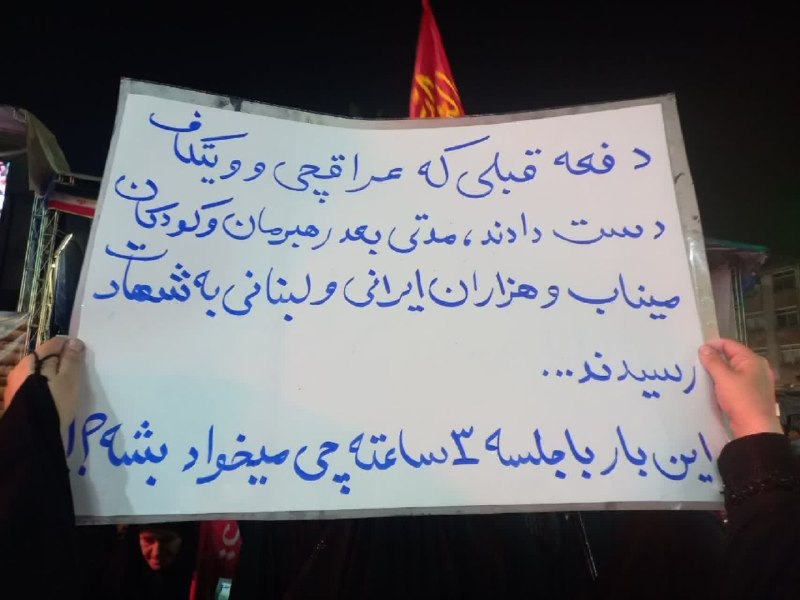 دفعه قبلی که عراقچی و ویتکاف
دست دادند، مدتی بعد رهبرمان و کودکان
میناب و هزاران ایرانی و لبنانی به شهادت
رسیدند...
این بار با جلسه ۳ ساعته چی میخواد بشه؟!